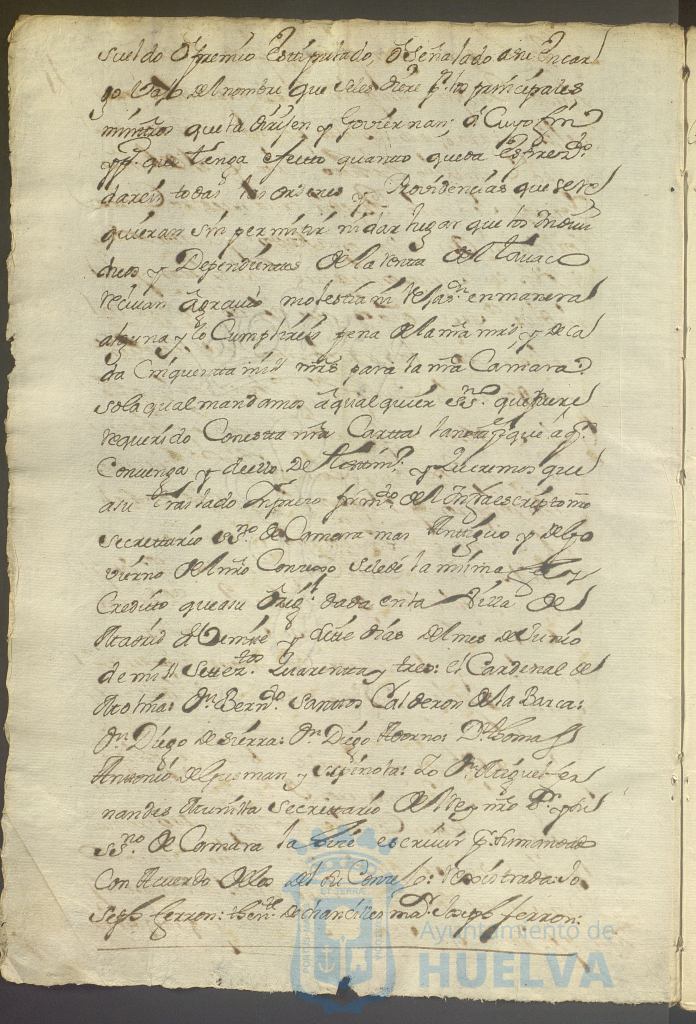 sueldo ô premio estipulado, ô señalado a su encar
go vajo del nombre que se les diere pr. los principales
ministros que la dirijen y Goviernan; â Cuyo fin
y pa. que tenga efecto quanto queda expresdo.
dareis todas las ordenes y Providencias que se re
quieran sin permitir ni dar lugar que los Indivi
duos y Dependientes de la renta del Tavaco
recivan agravio molestia ni vejaon. en manera
alguna y lo Cumplireis pena de la nra mrd, y de ca
da Cinquenta mill mrs para la nra Camara:
so la qual mandamos â qual quier ssno. que fuere
requerido Con esta nra Cartta la notifique â qn.
Convenga y de ello de testimo. y queremos que
a su traslado Impreso firmdo del Infraescripto nro
secrettario ssno. de Camara mas Antiguo y de Go
vierno del nro Consejo se le dê la misma fee y
Credito que a su Origl. dada en la Villa de
Madrid â Veinte y siete dias del mes de Junio
de mill Setteztos. Quarenta y tres: el Cardenal de
Molina: Dn. Berndo. Santtos Calderon de la Barca:
Dn. Diego de Sierra: Dn. Diego Adorno: Dn. Thomas
Antonio de Guzman y espinola: Yo Dn. Miguel fer
nandez Munilla secrettario del Rey nro Sr. y su
ssno. de Camara la hice escrivir pr. su mandado
Con Acuerdo de los del su Consejo: rexistrada: Jo
seph ferron: thente. de chanciller mar. Joseph ferron:
Ayuntamiento de
HUELVA